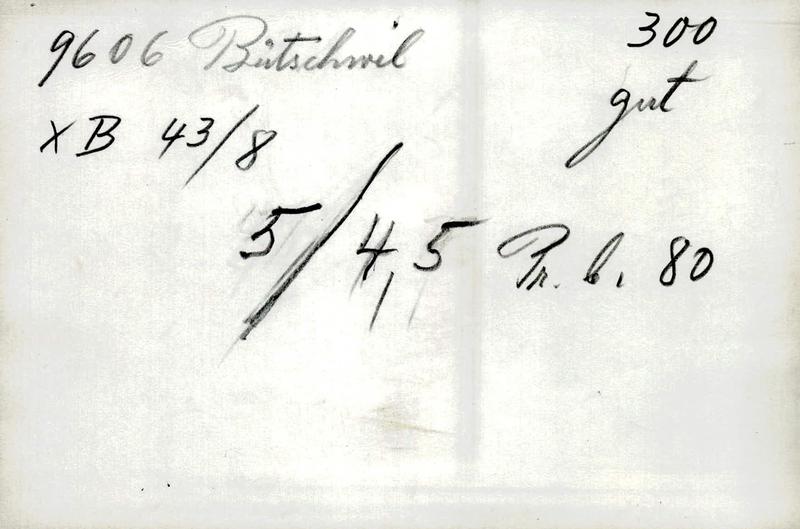 9606 Bütschwil 300
gut
x B 43/8
5/4,5 Pr. b. 80